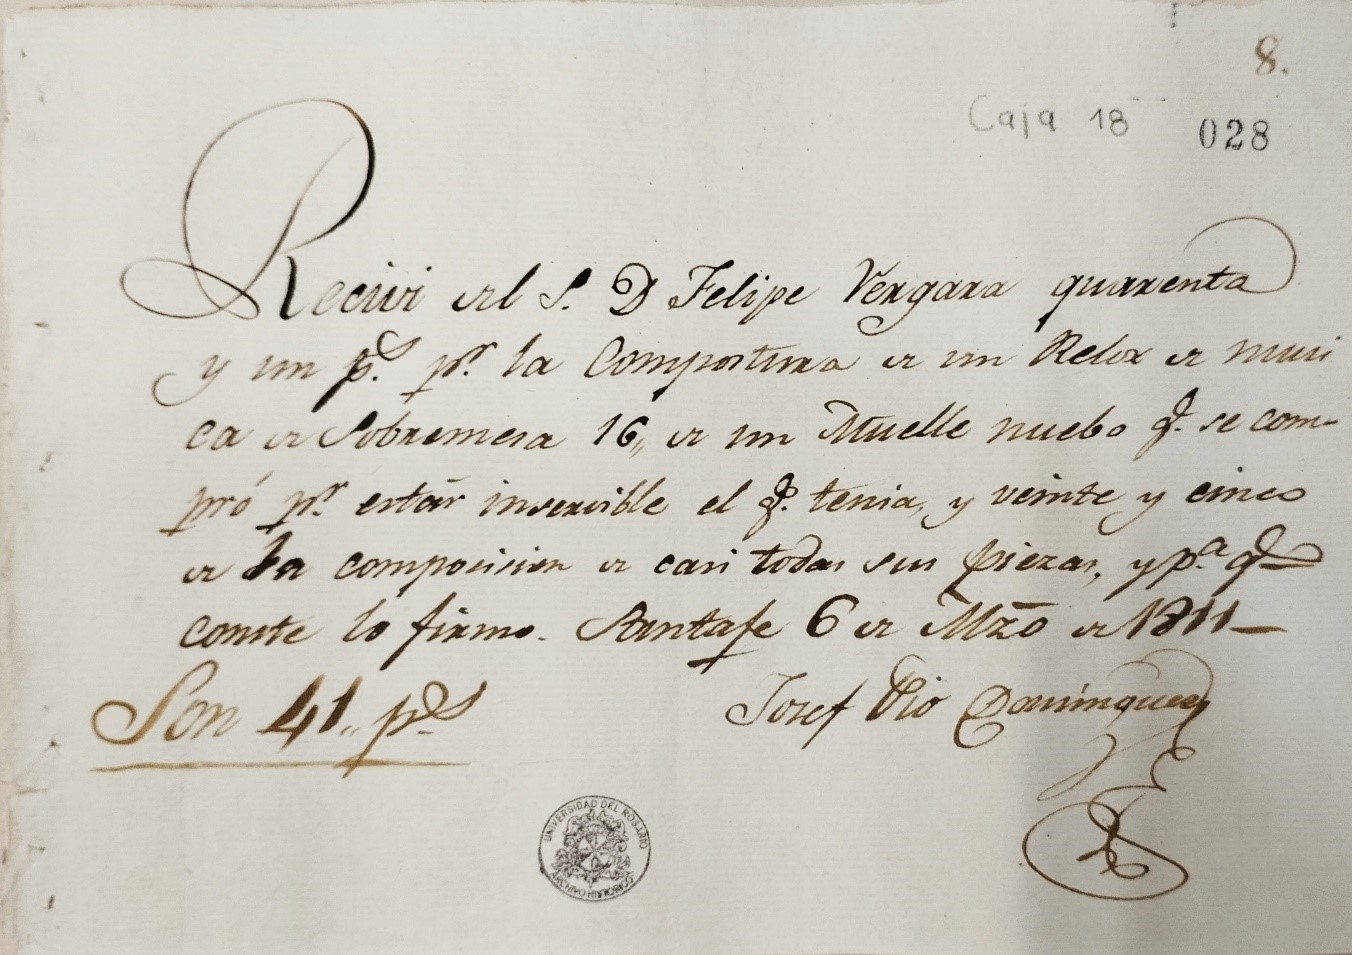 8.
Caja 18 028
Recivi del S. D Felipe Vergara quarenta
y un p.s p.r la Compostura de un Relox de musi
ca de Sobremesa 16,, de un Muelle nuebo q.e se com-
pró p.r estár inservible el q.e tenia, y veinte y cinco
de la composicion de casi todas sus piezas, y p.a q.e
conste lo firmo. Santafe 6 de Mzo de 1811—
Son 41,, p.s Josef Pio Domínguez
UNIVERSIDAD DEL ROSARIO
ARCHIVO HISTORICO